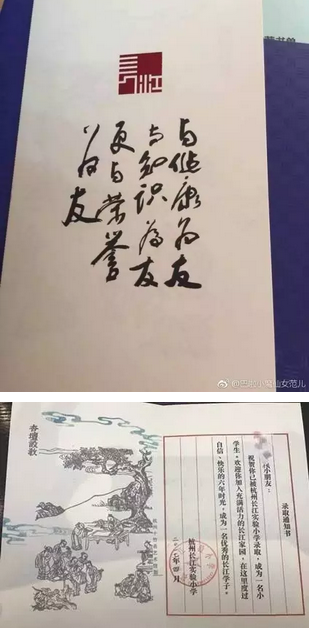 长江
与健康为友
与知识为友
更与荣誉
为友
小魔仙女范儿
录取通知书
小朋友：
祝贺你已被杭州长江实验小学录取，成为一名小
学生。欢迎你加入充满活力的长江家园，在这里度过
自信、快乐的六年时光，成为一名优秀的长江学子。
杭州长江实验小学
杏壇設教